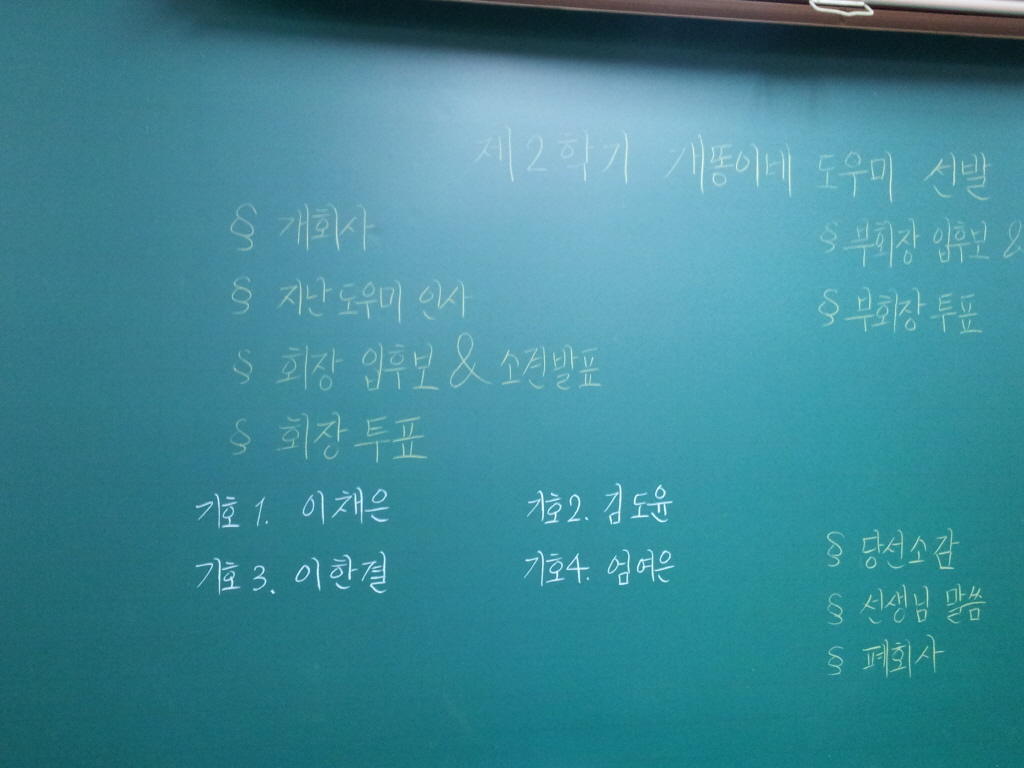 제2학기 개똥이네 도우미 선발
§ 개회사
§ 지난 도우미 인사
§ 회장 입후보 & 소견발표
§ 회장 투표
기호 1. 이채은
기호2. 김도윤
기호 3. 이한결
기호4. 엄여은
§ 부회장 입후보 &
§ 부회장 투표
§ 당선소감
§ 선생님 말씀
§ 폐회사